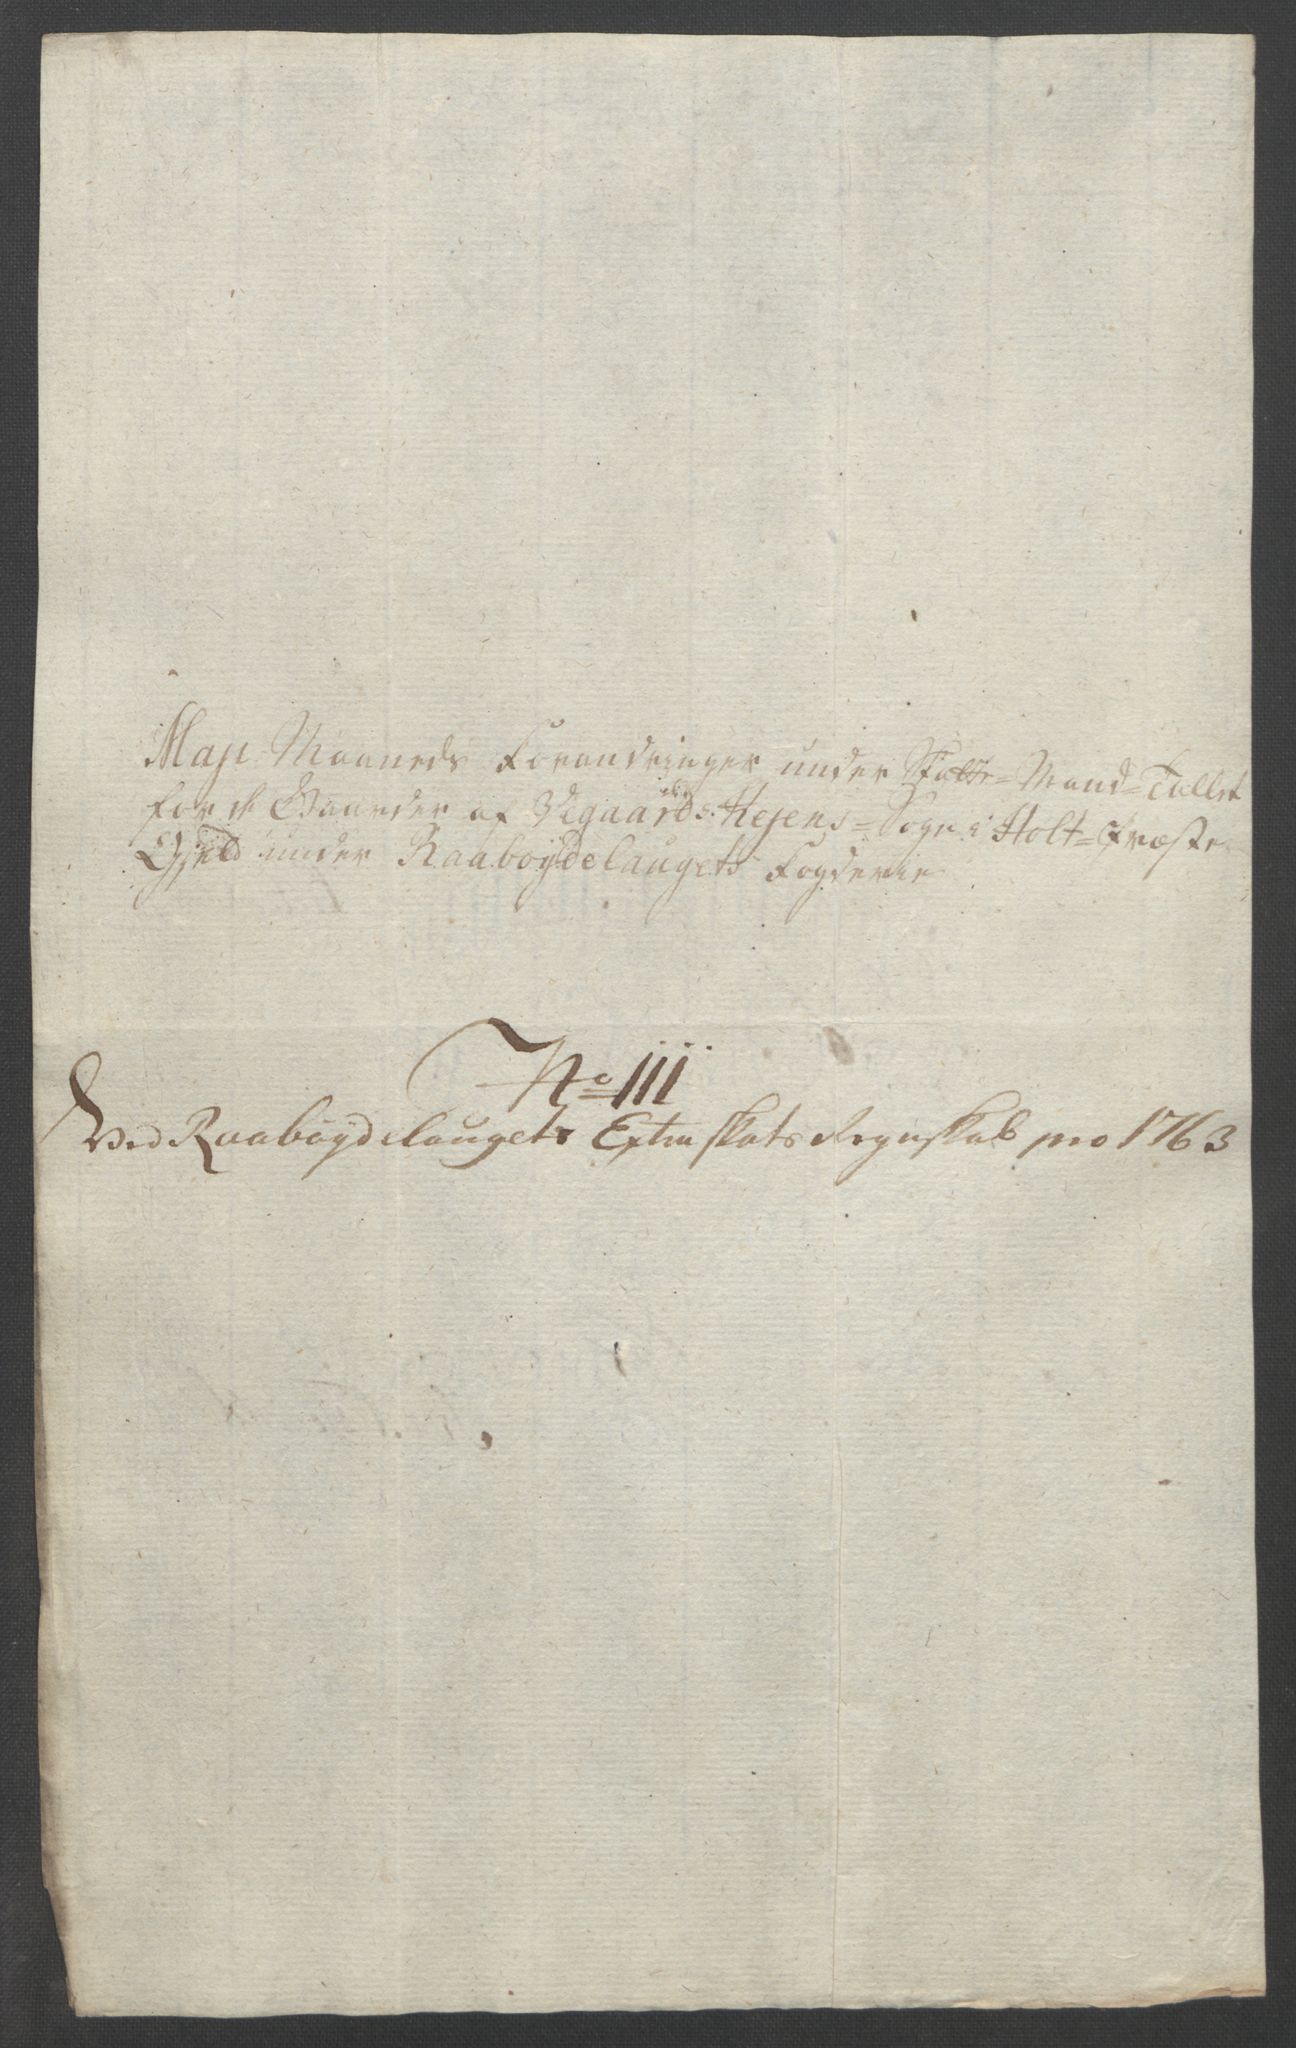 Maji Maaneds Forandringer under Skatte=Mand=Tallet
for de Gaarder af Vegaards: Hejens=Sogn i Holt=Præste
Gjeld under Raaboÿdelaugets Fogderie
No III
Ved Raabøÿdelaugets Extra skats Regnskab pro 1763